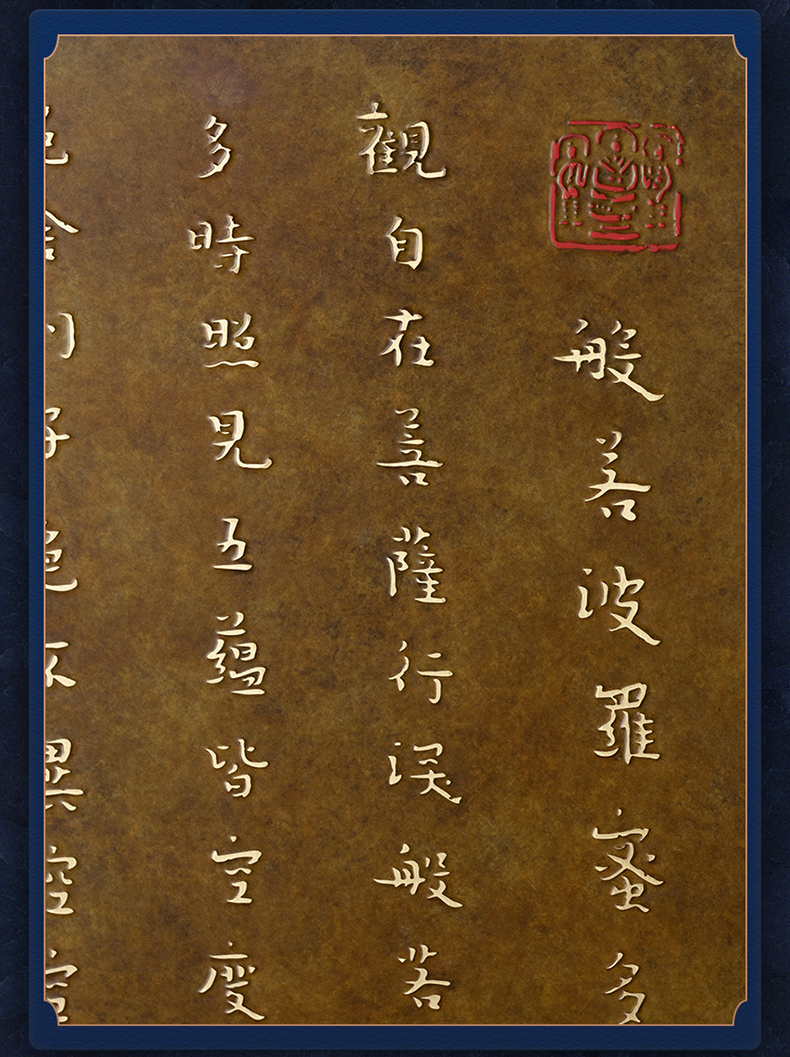 般若波羅蜜多
觀自在菩薩行深般若
多時照見五蘊皆空度
色舍利子色不異空空